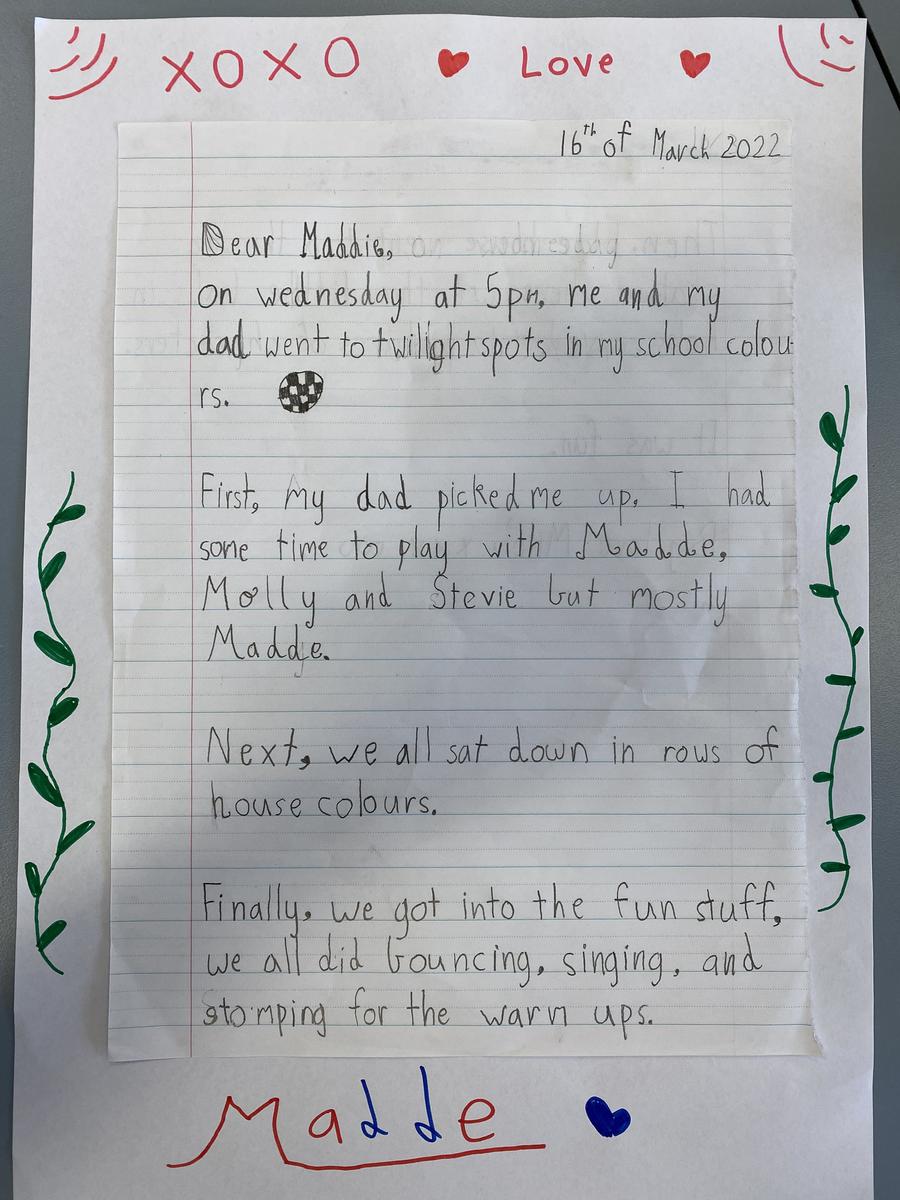 XOXO ♥ Love ♥
16th of March 2022
Dear Maddie,
On wednesday at 5pm, me and my
dad went to twilight spots in my school colou
rs.
First, my dad picked me up. I had
some time to play with Madde,
Molly and Stevie but mostly
Madde.
Next, we all sat down in rows of
house colours.
Finally, we got into the fun stuff,
we all did bouncing, singing, and
stomping for the warm ups.
Madde ♥